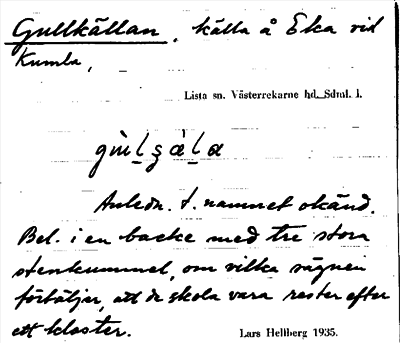 Gullkällan, källa å Eka vid
Kumla,
Lista sn. Västerrekarne hd. Sdml. l.
gùl̠ʂὰl̠a
Anledn. t. namnet okänd.
Bel. i en backe med tre stora
stenkummel, om vilka sägnen
förtäljer, att de skola vara rester efter
ett kloster.
Lars Hellberg 1935.